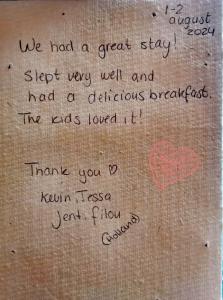 1-2
august
2024
We had a great stay!
Slept very well and
had a delicious breakfast.
The kids loved it!
Thank you ♡
Kevin, Tessa
Jent, Filou
(Holland)